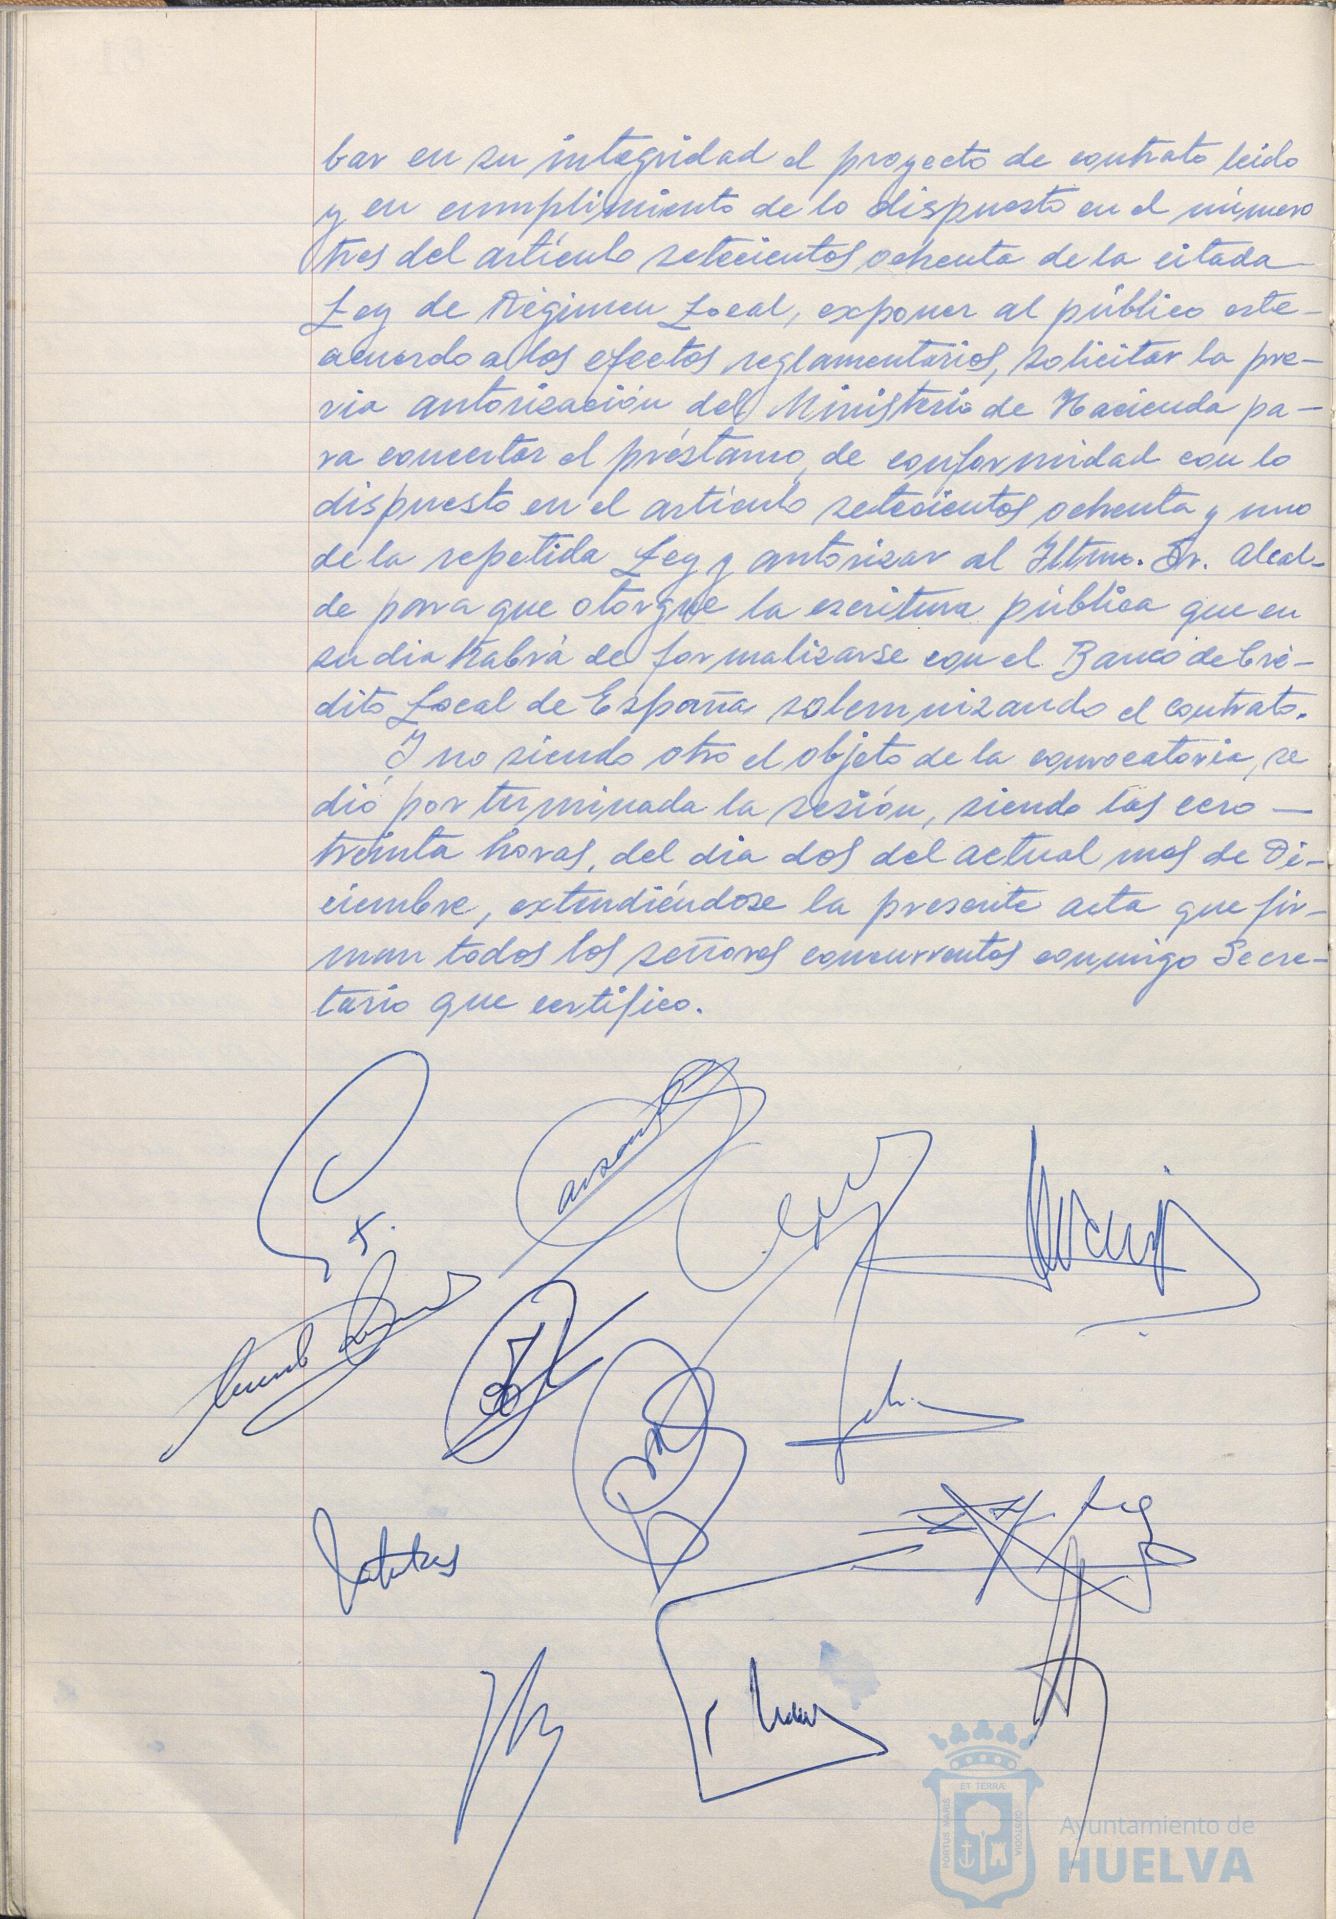 bar en su integridad el proyecto de contrato leido
y en cumplimiento de lo dispuesto en el número
tres del artículo setecientos ochenta de la citada
Ley de Régimen Local, exponer al público este
acuerdo a los efectos reglamentarios, solicitar la pre-
via autorización del Ministerio de Hacienda pa-
ra concertar el préstamo, de conformidad con lo
dispuesto en el artículo setecientos ochenta y uno
de la repetida Ley y autorizar al Iltmo. Sr. Alcal-
de para que otorgue la escritura pública que en
su dia habrá de formalizarse con el Banco de Cré-
dito Local de España solemnizando el contrato.
Y no siendo otro el objeto de la convocatoria, se
dió por terminada la sesión, siendo las cero
treinta horas, del dia dos del actual mes de Di-
ciembre, extendiéndose la presente acta que fir-
man todos los señores concurrentes conmigo Secre-
tario que certifico.
ET TERRÆ
PORTUS MARIS
CUSTODIA
Ayuntamiento de
HUELVA